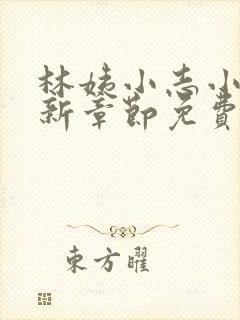 林姨小志小
新章節免費
東方曜